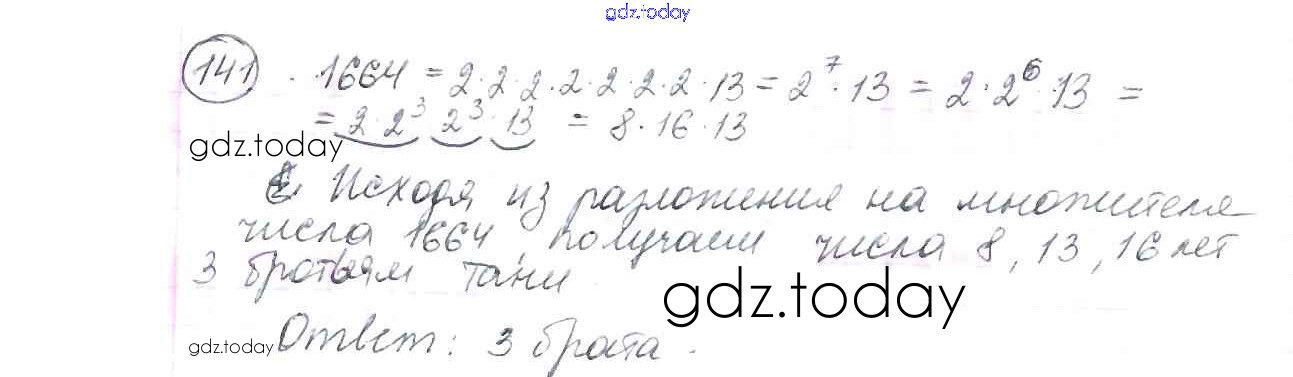 gdz.today
141. 1664 = 2·2·2·2·2·2·2·13 = 2⁷·13 = 2·2⁶·13 =
= 2·2³ 2³·13 = 8·16·13
gdz.today
Исходя из разложения на множителя
числа 1664, получаем числа 8, 13, 16 лет
3 братьям Тани
gdz.today
gdz.today
Ответ: 3 брата.